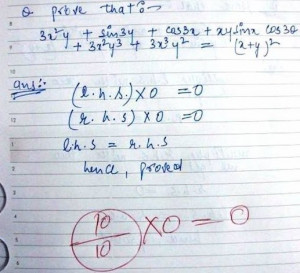 Q prove that :-
3x²y + sin3y + cos3x + xysinx cos3θ
+ 3x²y³ + 3x³y² = (x+y)²
Ans:-
(l.h.s.) × 0 = 0
(r.h.s) × 0 = 0
l.h.s = r.h.s
hence, proved
10/10 × 0 = 0